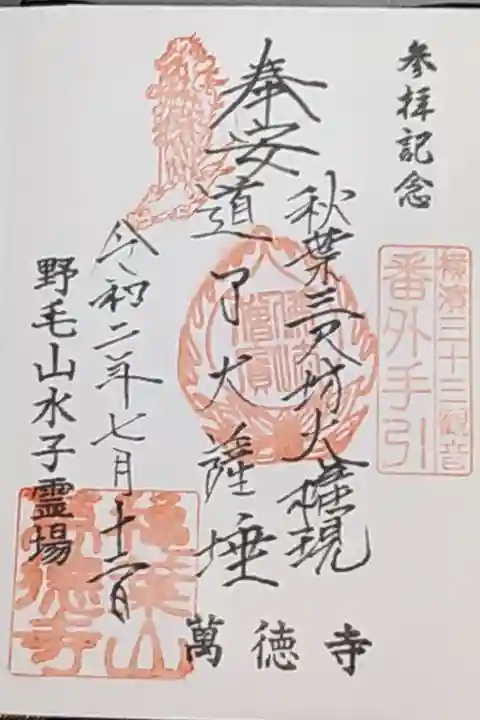 参拝記念
横濱三十三観音
番外手引
秋葉三尺坊大権現
奉安
道了大薩埵
令和二年七月十二日
野毛山水子霊場
萬徳寺